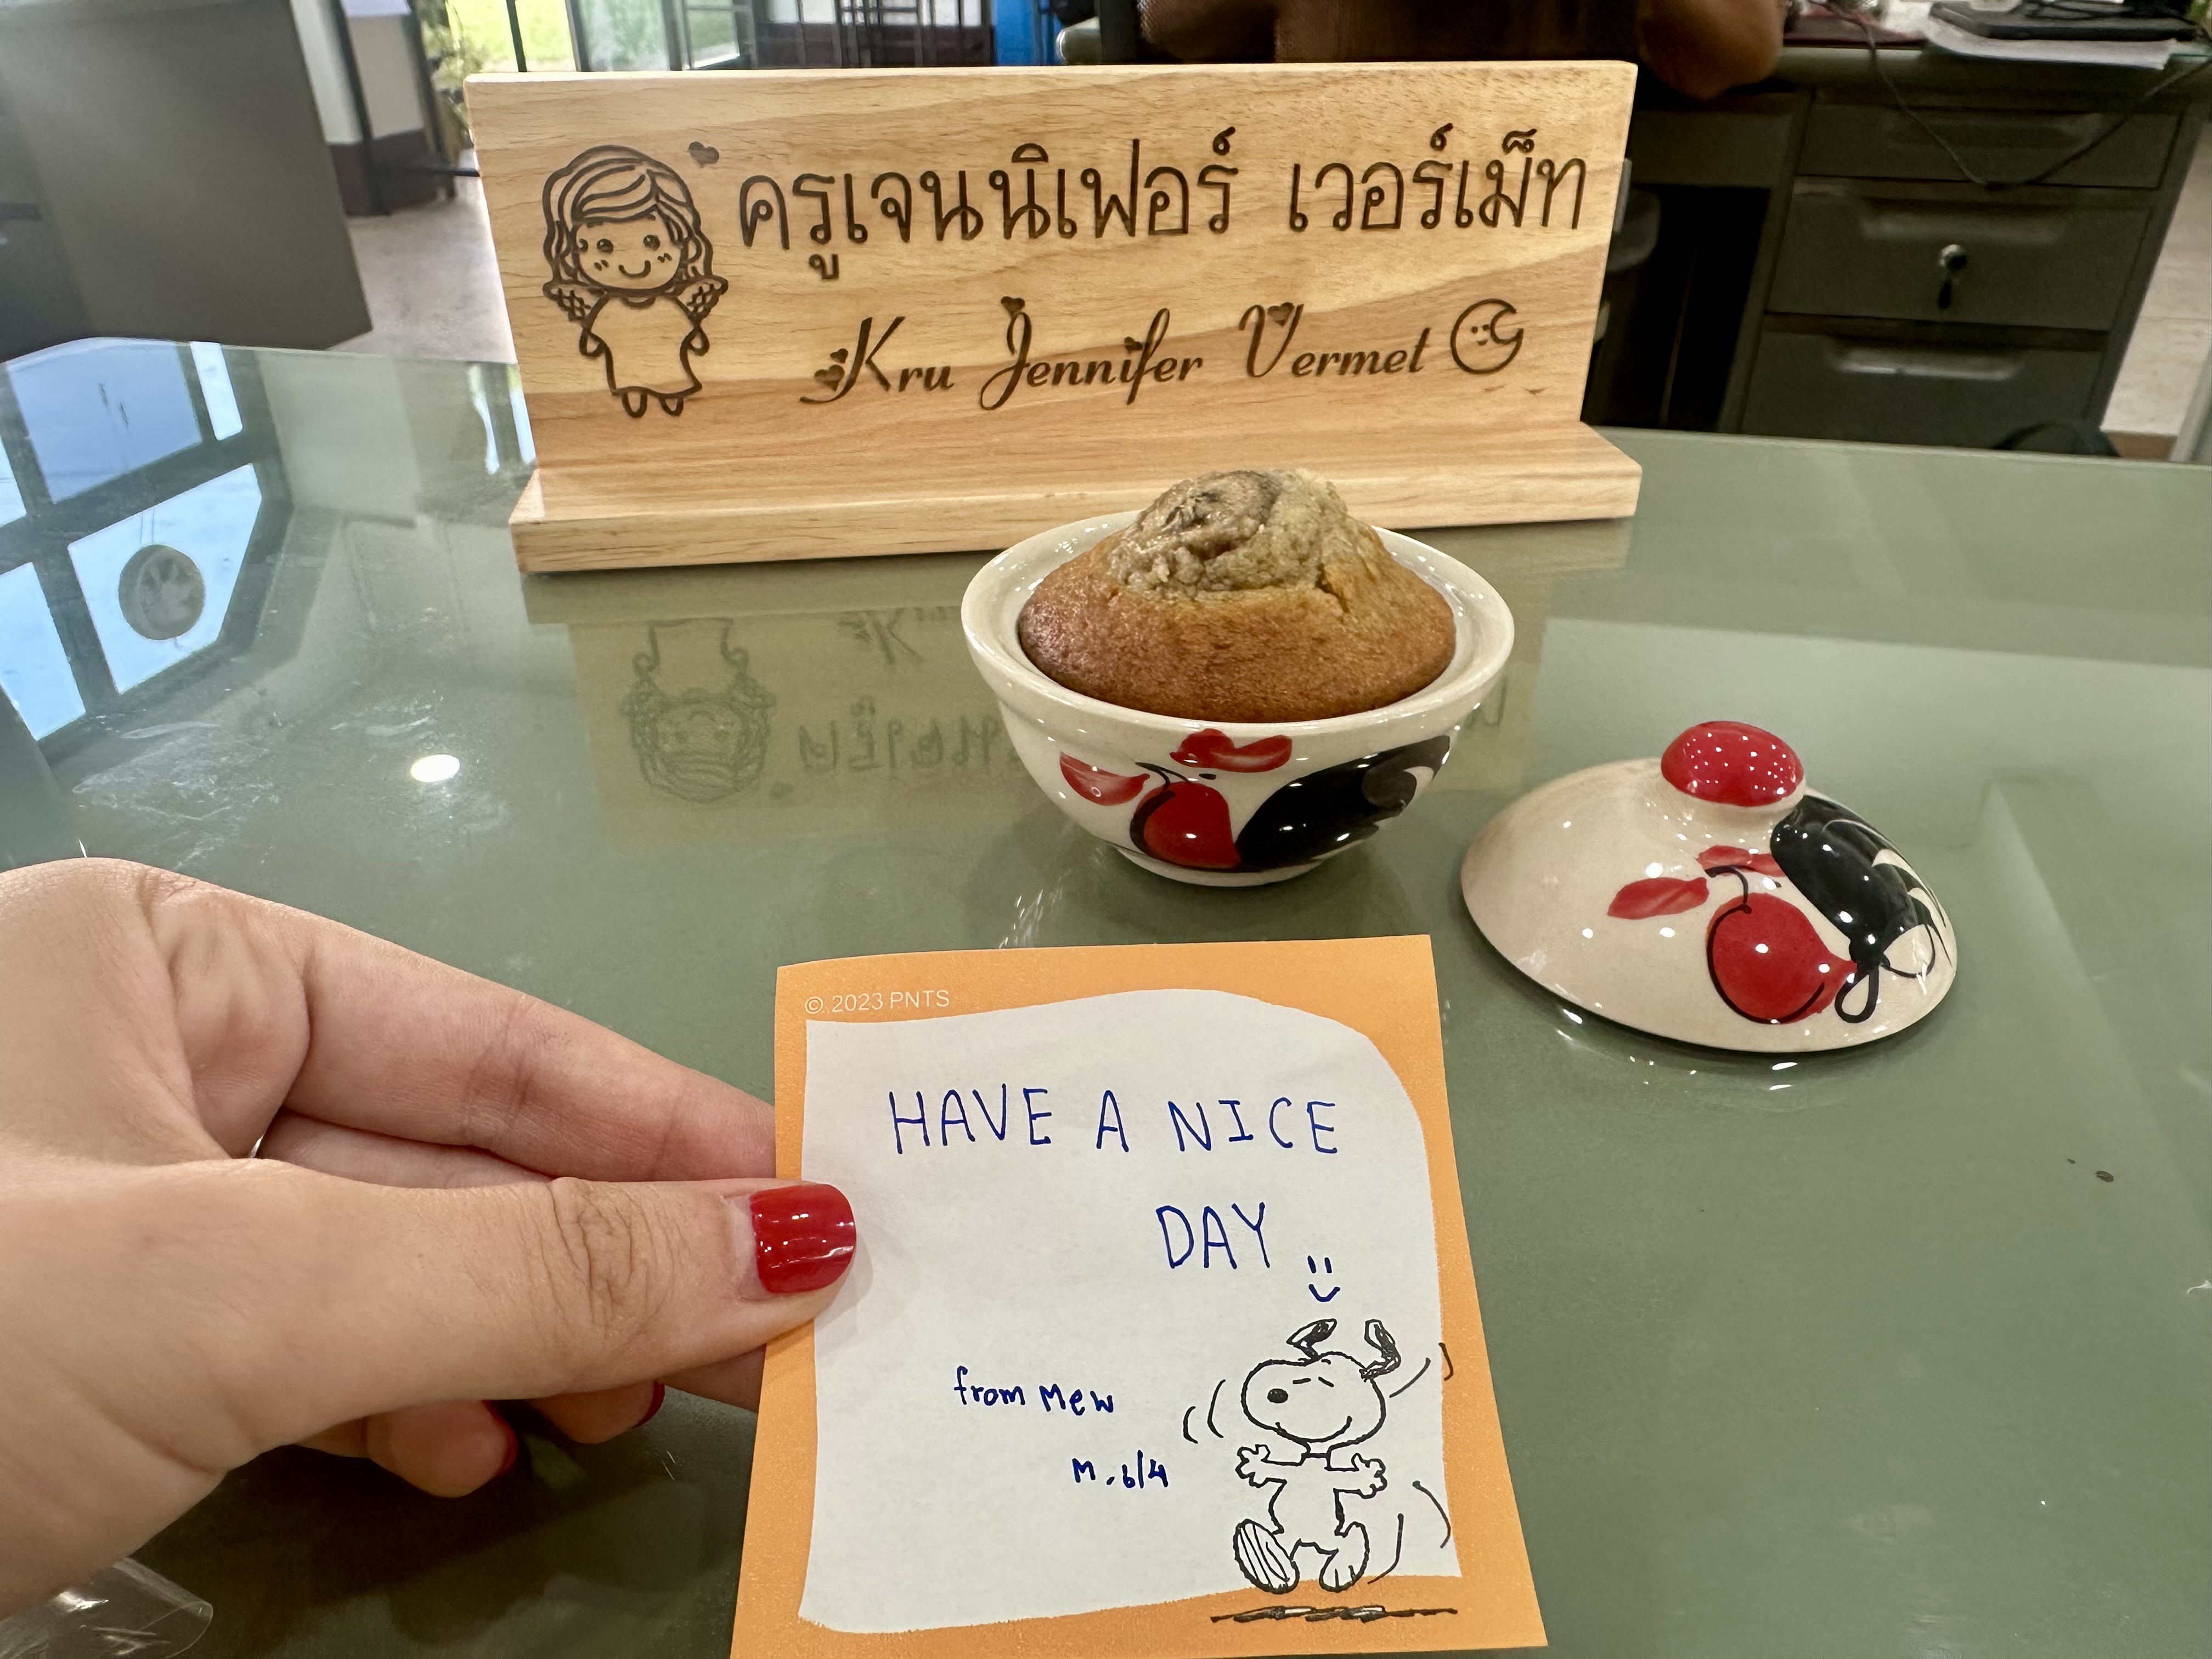 ครูเจนนิเฟอร์ เวอร์เม็ท
Kru Jennifer Vermet
© 2023 PNTS
HAVE A NICE
DAY
from Mew
M.6/4